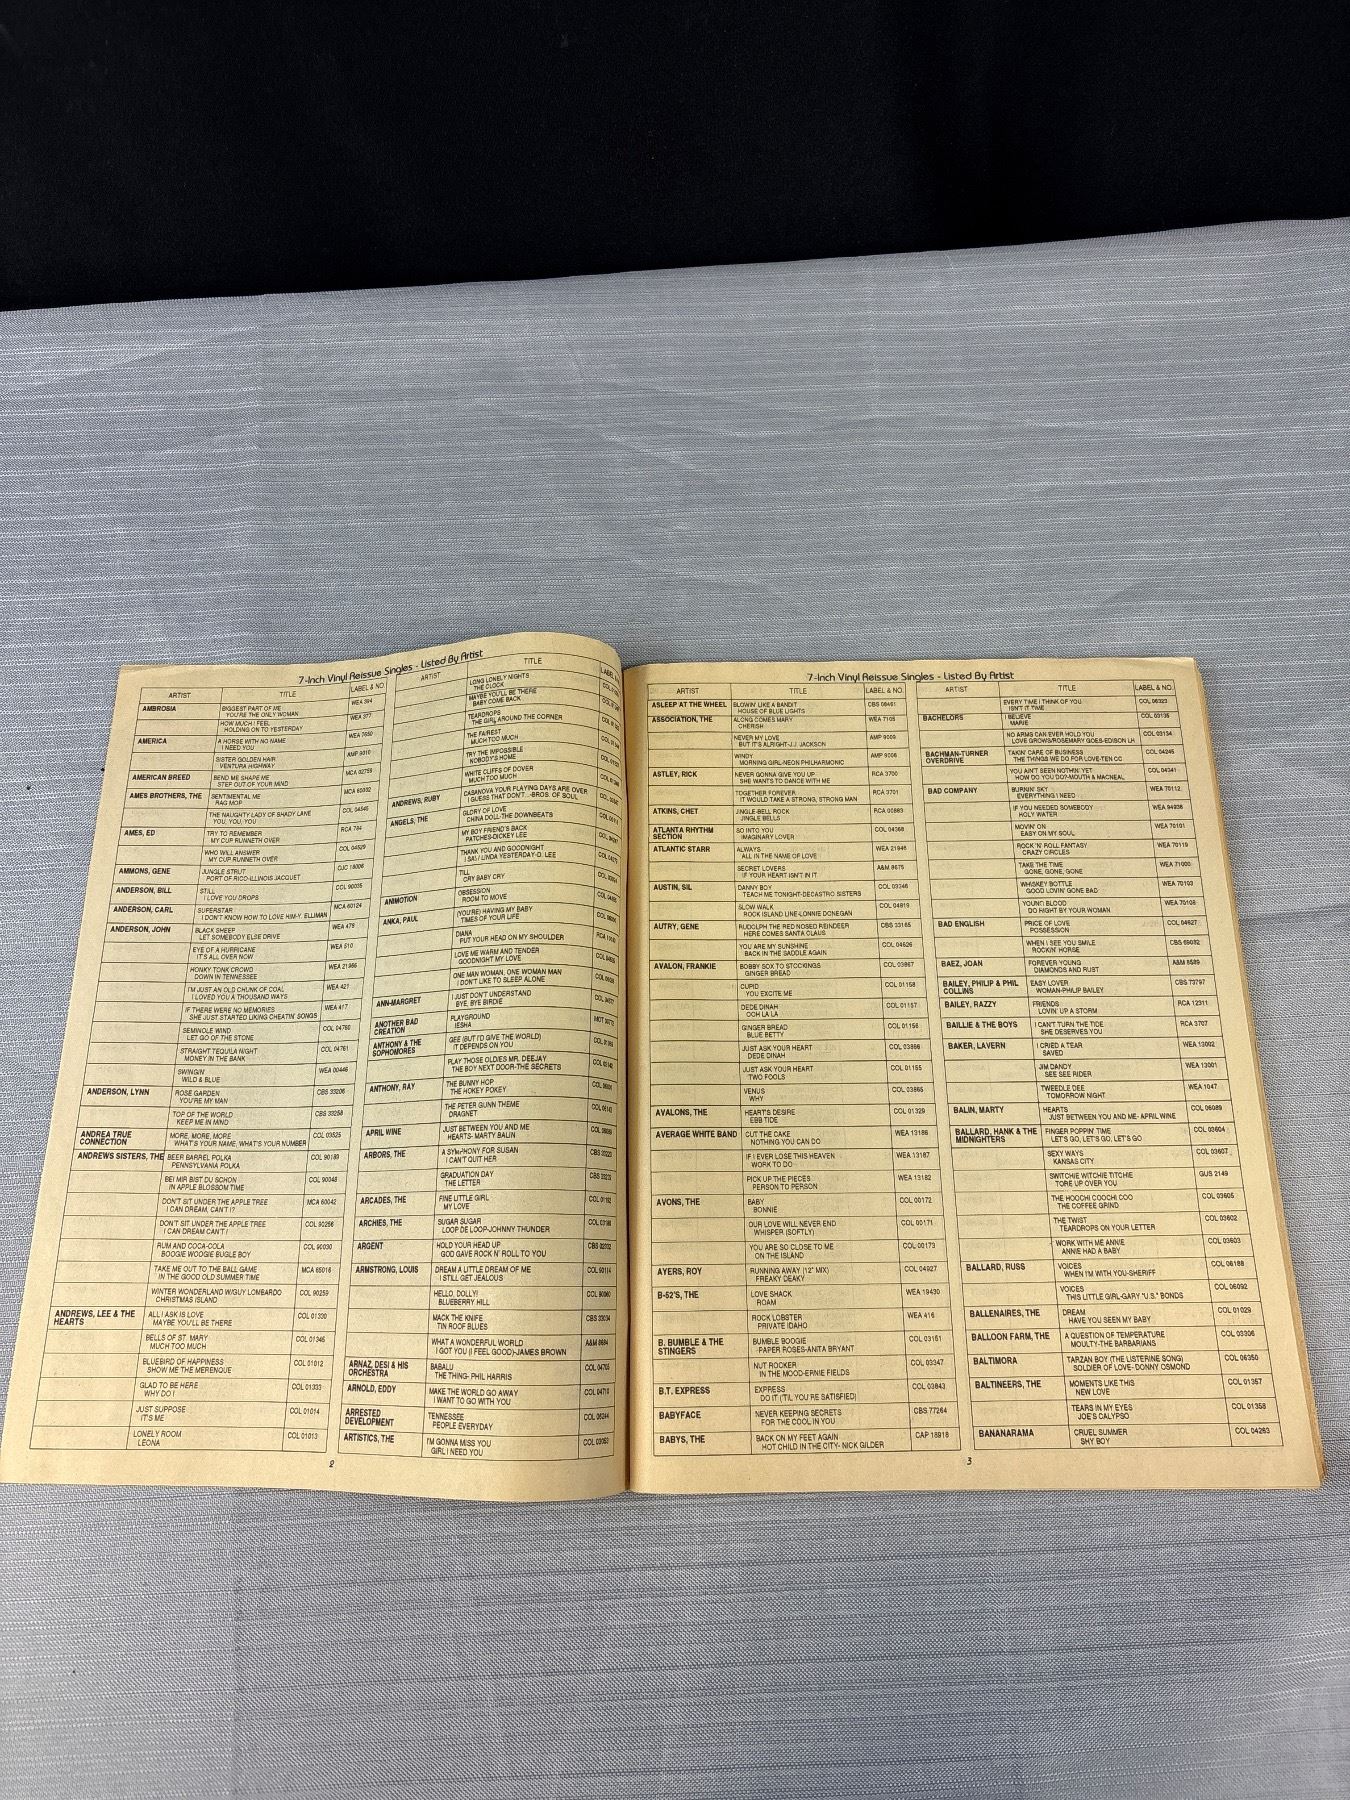 7-Inch Vinyl Reissue Singles - Listed By Artist
ARTIST TITLE LABEL & NO.
AMBROSIA BIGGEST PART OF ME WEA 394
YOU'RE THE ONLY WOMAN
HOW MUCH I FEEL WEA 377
HOLDING ON TO YESTERDAY
AMERICA A HORSE WITH NO NAME WEA 7650
I NEED YOU
SISTER GOLDEN HAIR AMP 9010
VENTURA HIGHWAY
AMERICAN BREED BEND ME SHAPE ME MCA 02759
STEP OUT OF YOUR MIND
AMES BROTHERS, THE SENTIMENTAL ME MCA 60032
RAG MOP
THE NAUGHTY LADY OF SHADY LANE COL 04546
YOU, YOU, YOU
AMES, ED TRY TO REMEMBER RCA 784
MY CUP RUNNETH OVER
WHO WILL ANSWER COL 04529
MY CUP RUNNETH OVER
AMMONS, GENE JUNGLE STRUT OJC 18006
PORT OF RICO-ILLINOIS JACQUET
ANDERSON, BILL STILL COL 90035
I LOVE YOU DROPS
ANDERSON, CARL SUPERSTAR MCA 60124
I DON'T KNOW HOW TO LOVE HIM-Y. ELLIMAN
ANDERSON, JOHN BLACK SHEEP WEA 479
LET SOMEBODY ELSE DRIVE
EYE OF A HURRICANE WEA 510
IT'S ALL OVER NOW
HONKY TONK CROWD WEA 21966
DOWN IN TENNESSEE
I'M JUST AN OLD CHUNK OF COAL WEA 421
I LOVED YOU A THOUSAND WAYS
IF THERE WERE NO MEMORIES WEA 417
SHE JUST STARTED LIKING CHEATIN' SONGS
SEMINOLE WIND COL 04760
LET GO OF THE STONE
STRAIGHT TEQUILA NIGHT COL 04761
MONEY IN THE BANK
SWINGIN' WEA 00446
WILD & BLUE
ANDERSON, LYNN ROSE GARDEN CBS 33206
YOU'RE MY MAN
TOP OF THE WORLD CBS 33258
KEEP ME IN MIND
ANDREA TRUE CONNECTION MORE, MORE, MORE COL 03525
WHAT'S YOUR NAME, WHAT'S YOUR NUMBER
ANDREWS SISTERS, THE BEER BARREL POLKA COL 90189
PENNSYLVANIA POLKA
BEI MIR BIST DU SCHON COL 90048
IN APPLE BLOSSOM TIME
DON'T SIT UNDER THE APPLE TREE MCA 60042
I CAN DREAM, CAN'T I?
DON'T SIT UNDER THE APPLE TREE COL 90256
I CAN DREAM CAN'T I
RUM AND COCA-COLA COL 90030
BOOGIE WOOGIE BUGLE BOY
TAKE ME OUT TO THE BALL GAME MCA 65016
IN THE GOOD OLD SUMMER TIME
WINTER WONDERLAND W/GUY LOMBARDO COL 90259
CHRISTMAS ISLAND
ANDREWS, LEE & THE HEARTS ALL I ASK IS LOVE COL 01330
MAYBE YOU'LL BE THERE
BELLS OF ST. MARY COL 01346
MUCH TOO MUCH
BLUEBIRD OF HAPPINESS COL 01012
SHOW ME THE MERENGUE
GLAD TO BE HERE COL 01333
WHY DO I
JUST SUPPOSE COL 01014
IT'S ME
LONELY ROOM COL 01013
LEONA
ARTIST TITLE
LONG LONELY NIGHTS
THE CLOCK
MAYBE YOU'LL BE THERE
BABY COME BACK
TEARDROPS
THE GIRL AROUND THE CORNER
THE FAIREST
MUCH TOO MUCH
TRY THE IMPOSSIBLE
NOBODY'S HOME
WHITE CLIFFS OF DOVER
MUCH TOO MUCH
ANDREWS, RUBY CASANOVA YOUR PLAYING DAYS ARE OVER
I GUESS THAT DON'T...-BROS. OF SOUL
ANGELS, THE GLORY OF LOVE
CHINA DOLL-THE DOWNBEATS
MY BOY FRIEND'S BACK
PATCHES-DICKEY LEE
THANK YOU AND GOODNIGHT
I SAW LINDA YESTERDAY-D. LEE
TILL
CRY BABY CRY
ANIMOTION OBSESSION
ROOM TO MOVE
ANKA, PAUL (YOU'RE) HAVING MY BABY
TIMES OF YOUR LIFE
DIANA
PUT YOUR HEAD ON MY SHOULDER
LOVE ME WARM AND TENDER
GOODNIGHT MY LOVE
ONE MAN WOMAN, ONE WOMAN MAN
I DON'T LIKE TO SLEEP ALONE
ANN-MARGRET I JUST DON'T UNDERSTAND
BYE, BYE BIRDIE
ANOTHER BAD CREATION PLAYGROUND
IESHA
ANTHONY & THE SOPHOMORES GEE (BUT I'D GIVE THE WORLD)
IT DEPENDS ON YOU
PLAY THOSE OLDIES MR. DEEJAY
THE BOY NEXT DOOR-THE SECRETS
ANTHONY, RAY THE BUNNY HOP
THE HOKEY POKEY
THE PETER GUNN THEME
DRAGNET
APRIL WINE JUST BETWEEN YOU AND ME
HEARTS- MARTY BALIN
ARBORS, THE A SYMPHONY FOR SUSAN
I CAN'T QUIT HER
GRADUATION DAY
THE LETTER
ARCADES, THE FINE LITTLE GIRL
MY LOVE
ARCHIES, THE SUGAR SUGAR
LOOP DE LOOP-JOHNNY THUNDER
ARGENT HOLD YOUR HEAD UP CBS 32032
GOD GAVE ROCK N' ROLL TO YOU
ARMSTRONG, LOUIS DREAM A LITTLE DREAM OF ME COL 90114
I STILL GET JEALOUS
HELLO, DOLLY! COL 90060
BLUEBERRY HILL
MACK THE KNIFE CBS 33034
TIN ROOF BLUES
WHAT A WONDERFUL WORLD A&M 8684
I GOT YOU (I FEEL GOOD)-JAMES BROWN
ARNAZ, DESI & HIS ORCHESTRA BABALU COL 04705
THE THING- PHIL HARRIS
ARNOLD, EDDY MAKE THE WORLD GO AWAY COL 04710
I WANT TO GO WITH YOU
ARRESTED DEVELOPMENT TENNESSEE COL 06244
PEOPLE EVERYDAY
ARTISTICS, THE I'M GONNA MISS YOU COL 03063
GIRL I NEED YOU
2
7-Inch Vinyl Reissue Singles - Listed By Artist
ARTIST TITLE LABEL & NO.
ASLEEP AT THE WHEEL BLOWIN' LIKE A BANDIT CBS 08461
HOUSE OF BLUE LIGHTS
ASSOCIATION, THE ALONG COMES MARY WEA 7105
CHERISH
NEVER MY LOVE AMP 9009
BUT IT'S ALRIGHT-J.J. JACKSON
WINDY AMP 9006
MORNING GIRL-NEON PHILHARMONIC
ASTLEY, RICK NEVER GONNA GIVE YOU UP RCA 3700
SHE WANTS TO DANCE WITH ME
TOGETHER FOREVER RCA 3701
IT WOULD TAKE A STRONG, STRONG MAN
ATKINS, CHET JINGLE-BELL ROCK RCA 00883
JINGLE BELLS
ATLANTA RHYTHM SECTION SO INTO YOU COL 04368
IMAGINARY LOVER
ATLANTIC STARR ALWAYS WEA 21946
ALL IN THE NAME OF LOVE
SECRET LOVERS A&M 8675
IF YOUR HEART ISN'T IN IT
AUSTIN, SIL DANNY BOY COL 03346
TEACH ME TONIGHT-DECASTRO SISTERS
SLOW WALK COL 04819
ROCK ISLAND LINE-LONNIE DONEGAN
AUTRY, GENE RUDOLPH THE RED NOSED REINDEER CBS 33165
HERE COMES SANTA CLAUS
YOU ARE MY SUNSHINE COL 04626
BACK IN THE SADDLE AGAIN
AVALON, FRANKIE BOBBY SOX TO STOCKINGS COL 03867
GINGER BREAD
CUPID COL 01158
YOU EXCITE ME
DEDE DINAH COL 01157
OOH LA LA
GINGER BREAD COL 01156
BLUE BETTY
JUST ASK YOUR HEART COL 03866
DEDE DINAH
JUST ASK YOUR HEART COL 01155
TWO FOOLS
VENUS COL 03865
WHY
AVALONS, THE HEART'S DESIRE COL 01329
EBB TIDE
AVERAGE WHITE BAND CUT THE CAKE WEA 13186
NOTHING YOU CAN DO
IF I EVER LOSE THIS HEAVEN WEA 13187
WORK TO DO
PICK UP THE PIECES WEA 13182
PERSON TO PERSON
AVONS, THE BABY COL 00172
BONNIE
OUR LOVE WILL NEVER END COL 00171
WHISPER (SOFTLY)
YOU ARE SO CLOSE TO ME COL 00173
ON THE ISLAND
AYERS, ROY RUNNING AWAY (12" MIX) COL 04927
FREAKY DEAKY
B-52'S, THE LOVE SHACK WEA 19430
ROAM
ROCK LOBSTER WEA 416
PRIVATE IDAHO
B. BUMBLE & THE STINGERS BUMBLE BOOGIE COL 03151
-PAPER ROSES-ANITA BRYANT
NUT ROCKER COL 03347
IN THE MOOD-ERNIE FIELDS
B.T. EXPRESS EXPRESS COL 03843
DO IT ('TIL YOU'RE SATISFIED)
BABYFACE NEVER KEEPING SECRETS CBS 77264
FOR THE COOL IN YOU
BABYS, THE BACK ON MY FEET AGAIN CAP 18918
HOT CHILD IN THE CITY- NICK GILDER
ARTIST TITLE LABEL & NO.
EVERY TIME I THINK OF YOU COL 06323
ISN'T IT TIME
BACHELORS I BELIEVE COL 03135
MARIE
NO ARMS CAN EVER HOLD YOU COL 03134
LOVE GROWS/ROSEMARY GOES-EDISON LH
BACHMAN-TURNER OVERDRIVE TAKIN' CARE OF BUSINESS COL 04245
THE THINGS WE DO FOR LOVE-TEN CC
YOU AIN'T SEEN NOTHIN' YET COL 04341
HOW DO YOU DO?-MOUTH & MACNEAL
BAD COMPANY BURNIN' SKY WEA 70112
EVERYTHING I NEED
IF YOU NEEDED SOMEBODY WEA 94938
HOLY WATER
MOVIN' ON WEA 70101
EASY ON MY SOUL
ROCK 'N' ROLL FANTASY WEA 70119
CRAZY CIRCLES
TAKE THE TIME WEA 71000
GONE, GONE, GONE
WHISKEY BOTTLE WEA 70103
GOOD LOVIN' GONE BAD
YOUNG BLOOD WEA 70108
DO RIGHT BY YOUR WOMAN
BAD ENGLISH PRICE OF LOVE COL 04627
POSSESSION
WHEN I SEE YOU SMILE CBS 69082
ROCKIN' HORSE
BAEZ, JOAN FOREVER YOUNG A&M 8589
DIAMONDS AND RUST
BAILEY, PHILIP & PHIL COLLINS EASY LOVER CBS 73797
WOMAN-PHILIP BAILEY
BAILEY, RAZZY FRIENDS RCA 12311
LOVIN' UP A STORM
BAILLIE & THE BOYS I CAN'T TURN THE TIDE RCA 3707
SHE DESERVES YOU
BAKER, LAVERN I CRIED A TEAR WEA 13002
SAVED
JIM DANDY WEA 13001
SEE SEE RIDER
TWEEDLE DEE WEA 1047
TOMORROW NIGHT
BALIN, MARTY HEARTS COL 06089
JUST BETWEEN YOU AND ME- APRIL WINE
BALLARD, HANK & THE MIDNIGHTERS FINGER POPPIN' TIME COL 03604
LET'S GO, LET'S GO, LET'S GO
SEXY WAYS COL 03607
KANSAS CITY
SWITCH WITCHIE TITCHIE GUS 2149
TORE UP OVER YOU
THE HOOCHI COOCHI COO COL 03605
THE COFFEE GRIND
THE TWIST COL 03602
TEARDROPS ON YOUR LETTER
WORK WITH ME ANNIE COL 03603
ANNIE HAD A BABY
BALLARD, RUSS VOICES COL 06188
WHEN I'M WITH YOU-SHERIFF
VOICES COL 06092
THIS LITTLE GIRL-GARY "U.S." BONDS
BALLENAIRES, THE DREAM COL 01029
HAVE YOU SEEN MY BABY
BALLOON FARM, THE A QUESTION OF TEMPERATURE COL 03306
MOULTY-THE BARBARIANS
BALTIMORA TARZAN BOY (THE LISTERINE SONG) COL 06350
SOLDIER OF LOVE- DONNY OSMOND
BALTINEERS, THE MOMENTS LIKE THIS COL 01357
NEW LOVE
TEARS IN MY EYES COL 01358
JOE'S CALYPSO
BANANARAMA CRUEL SUMMER COL 04263
SHY BOY
3